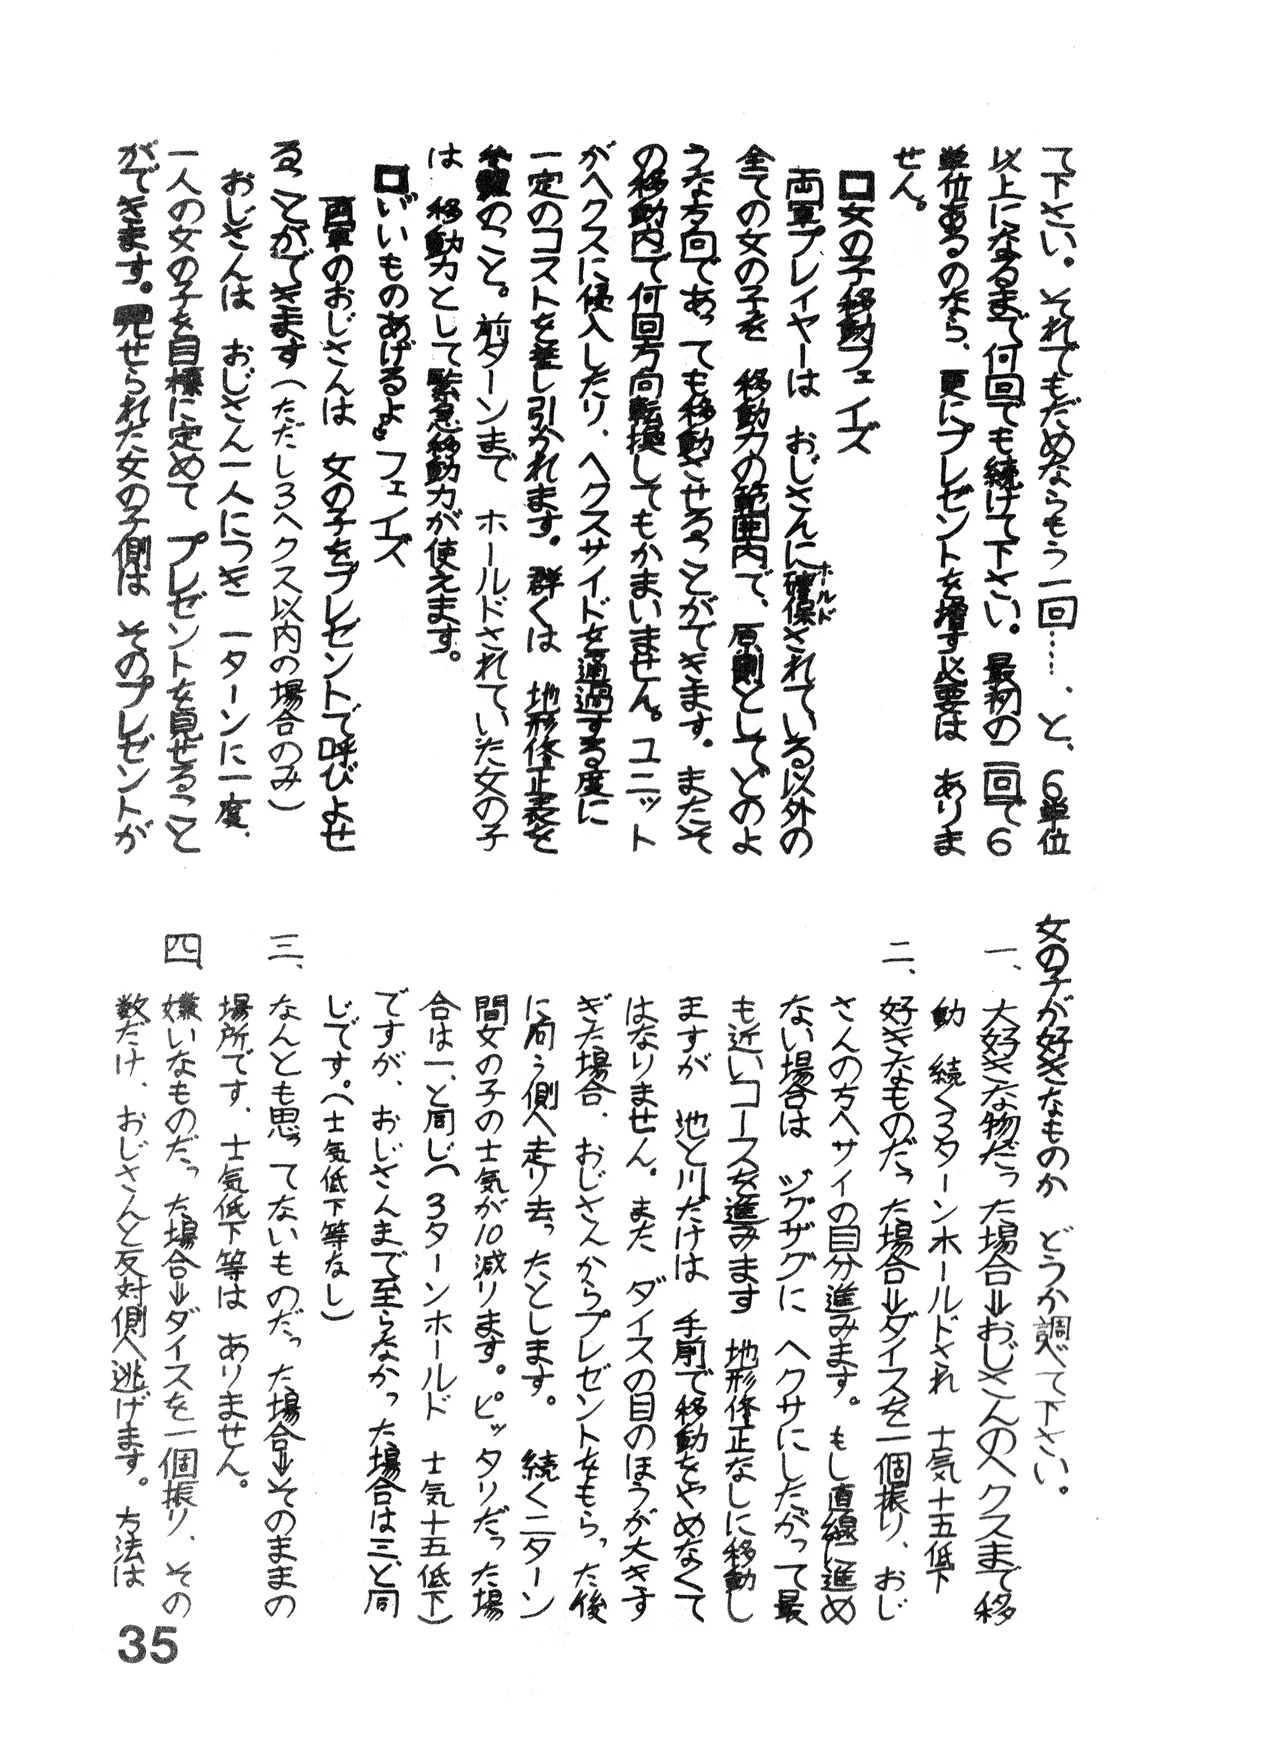 て下さい。それでもだめならもう一回……、と、6単位
以上になるまで何回でも続けて下さい。最初の一回で6
単位あるのなら、更にプレゼントを増す必要は ありま
せん。
□女の子移動フェイズ
両軍プレイヤーは おじさんに確保されている以外の
ホールド
全ての女の子を 移動力の範囲内で、原則としてどのよ
うな方向であっても移動させることができます。またそ
の移動内で何回方向転換してもかまいません。ユニット
がヘクスに侵入したり、ヘクスサイドを通過する度に
一定のコストを差し引かれます。群くは 地形修正表を
参照のこと。前ターンまで ホールドされていた女の子
は 移動力として緊急移動力が使えます。
□“いいものあげるよ”フェイズ
両軍のおじさんは 女の子をプレゼントで呼びよせ
ることができます(ただし3ヘクス以内の場合のみ)
おじさんは おじさん一人につき 一ターンに一度、
一人の女の子を目標に定めて プレゼントを見せること
ができます。見せられた女の子側は そのプレゼントが
女の子が好きなものか どうか調べて下さい。
一、大好きな物だった場合⇒おじさんのヘクスまで移
動 続く3ターンホールドされ 士気十五低下
二、好きなものだった場合⇒ダイスを一個振り、おじ
さんの方へサイの目分進みます。もし直線に進め
ない場合は ジグザグに ヘクサにしたがって最
も近いコースを進みます 地形修正なしに移動し
ますが 池と川だけは 手前で移動をやめなくて
はなりません。また ダイスの目のほうが大きす
ぎた場合、おじさんからプレゼントをもらった後
に向う側へ走り去ったとします。 続く二ターン
間女の子の士気が10減ります。ピッタリだった場
合は一、と同じ(3ターンホールド 士気十五低下)
ですが、おじさんまで至らなかった場合は三、と同
じです。(士気低下等なし)
三、なんとも思ってないものだった場合⇒そのままの
場所です、士気低下等は ありません。
四、嫌いなものだった場合⇒ダイスを一個振り、その
数だけ、おじさんと反対側へ逃げます。方法は
35